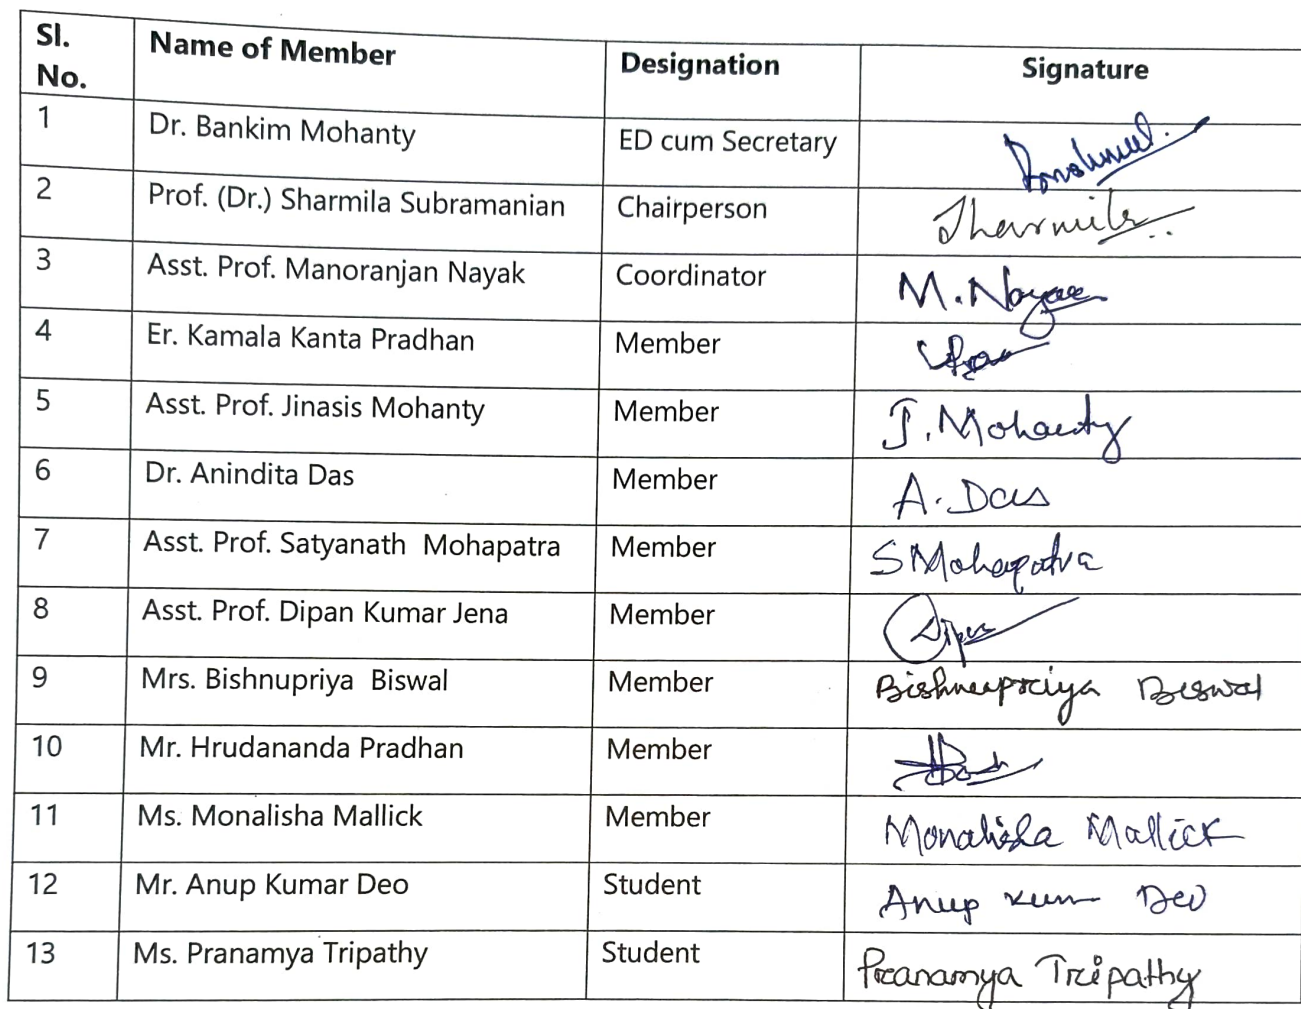 Sl. No. Name of Member Designation Signature
1 Dr. Bankim Mohanty ED cum Secretary
2 Prof. (Dr.) Sharmila Subramanian Chairperson Sharmila
3 Asst. Prof. Manoranjan Nayak Coordinator M. Nayak
4 Er. Kamala Kanta Pradhan Member
5 Asst. Prof. Jinasis Mohanty Member J. Mohanty
6 Dr. Anindita Das Member A. Das
7 Asst. Prof. Satyanath Mohapatra Member S Mohapatra
8 Asst. Prof. Dipan Kumar Jena Member Dipan
9 Mrs. Bishnupriya Biswal Member Bishnupriya Biswal
10 Mr. Hrudananda Pradhan Member
11 Ms. Monalisha Mallick Member Monalisha Mallick
12 Mr. Anup Kumar Deo Student Anup Kum Deo
13 Ms. Pranamya Tripathy Student Pranamya Tripathy